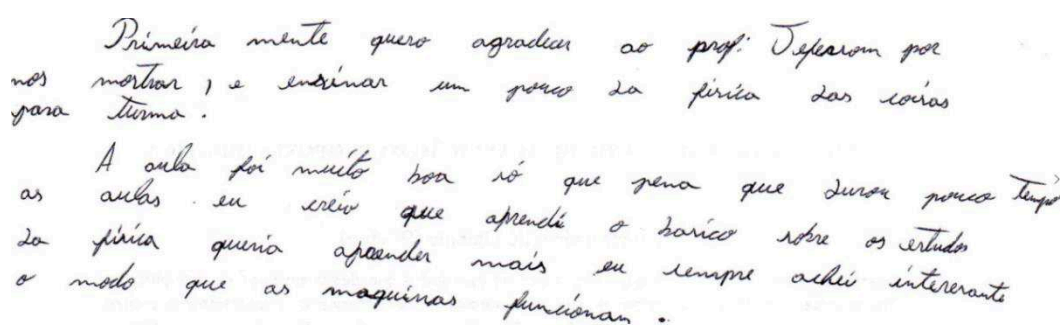 Primeira mente quero agradecer ao prof: Jeferson por
nos mostrar, e ensinar um pouco da física das coisas
para turma.
A aula foi muito boa só que pena que durou pouco tempo
as aulas eu creio que aprendi o basico sobre os estudos
da física queria aprender mais eu sempre achei interesante
o modo que as maquinas funcionam.